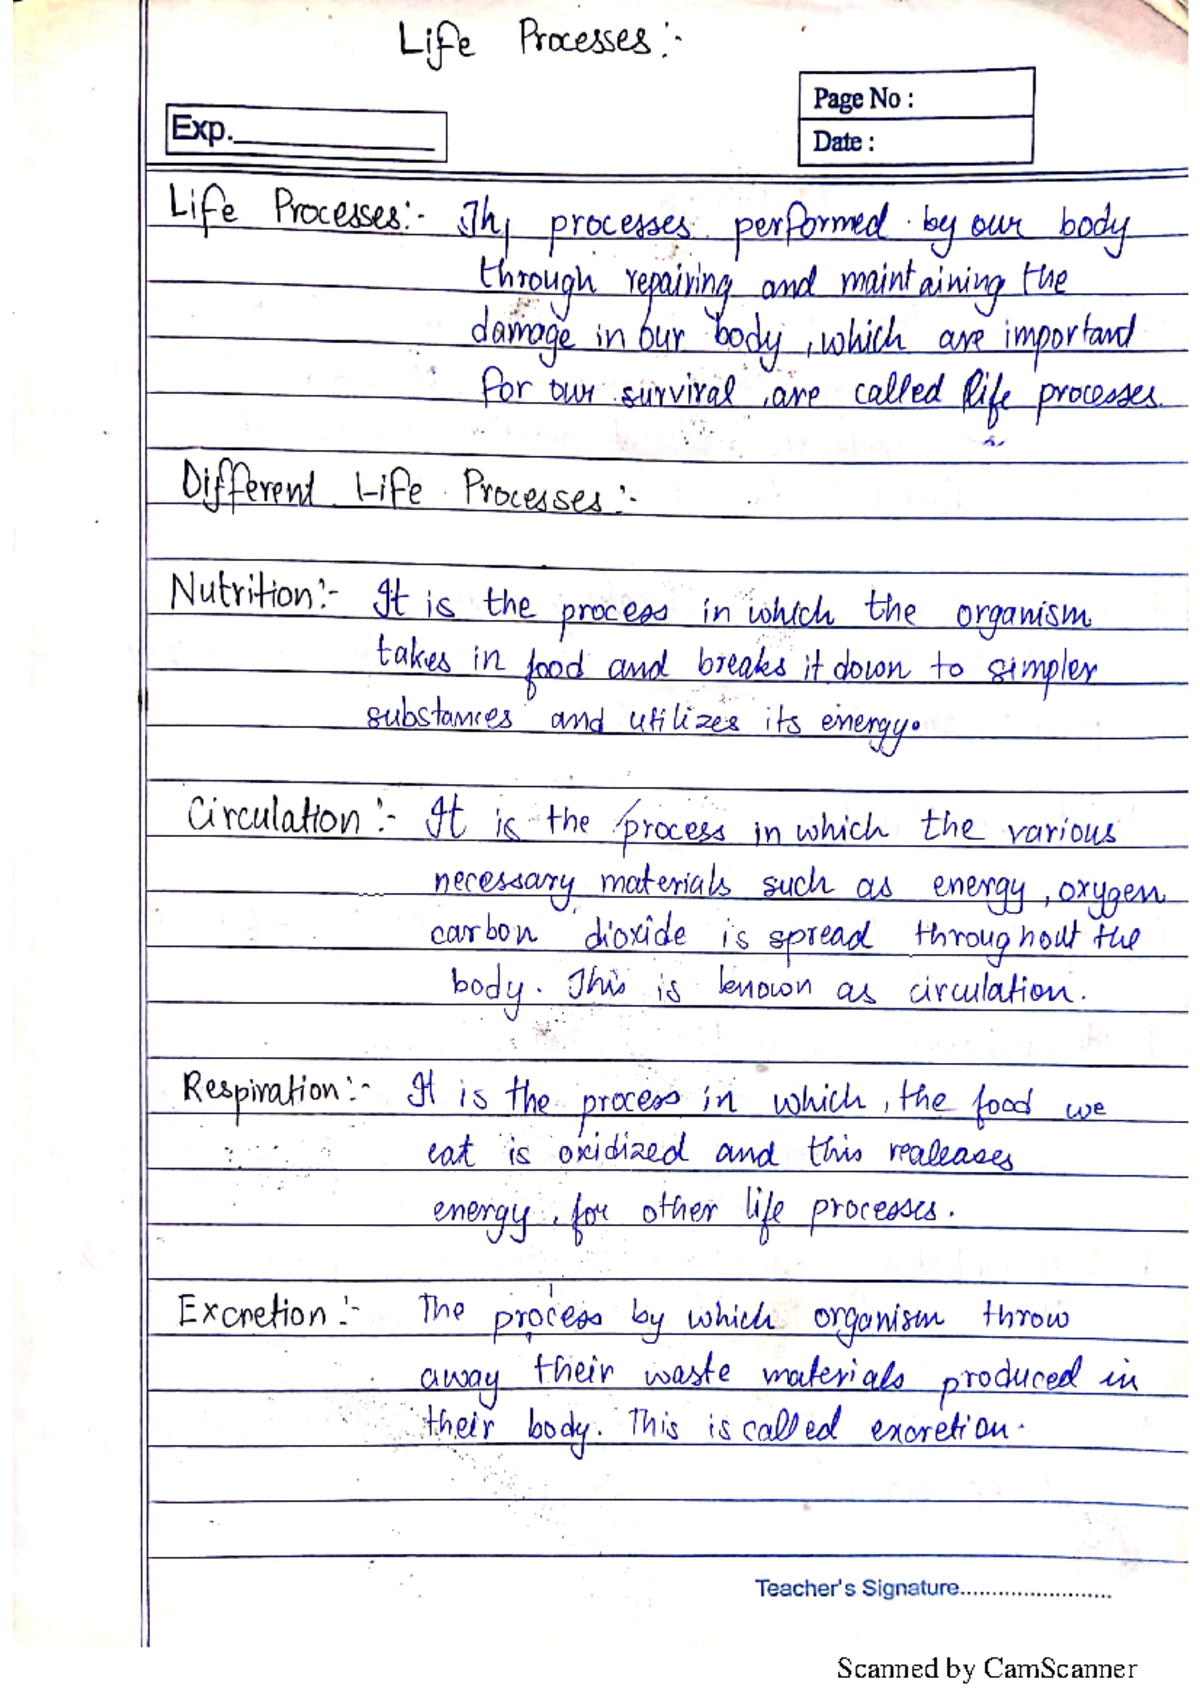 Life Processes:-
Page No :
Exp.
Date :
Life Processes:- The processes performed by our body
through repairing and maintaining the
damage in our body, which are important
for our survival, are called life processes.
Different Life Processes:-
Nutrition:- It is the process in which the organism
takes in food and breaks it down to simpler
substances and utilizes its energy.
Circulation:- It is the process in which the various
necessary materials such as energy, oxygen
carbon dioxide is spread throughout the
body. This is known as circulation.
Respiration:- It is the process in which, the food we
eat is oxidized and this realeases
energy, for other life processes.
Excretion:- The process by which organism throw
away their waste materials produced in
their body. This is called excretion.
Teacher's Signature........................
Scanned by CamScanner